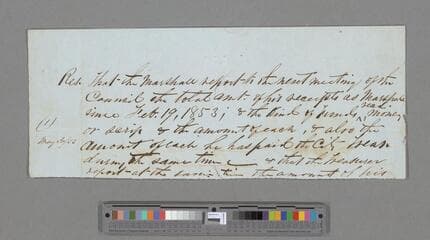 Res. That the Marshall report to the next meeting of the
Council the total amt. of his receipts as Marshall
since Feb. 19, 1853; & the kind of funds, money
or scrip & the amount of each, & also the
amount of each he has paid the City Treas
during the same time & that the treasurer
report at the same time the amount of his
(1)